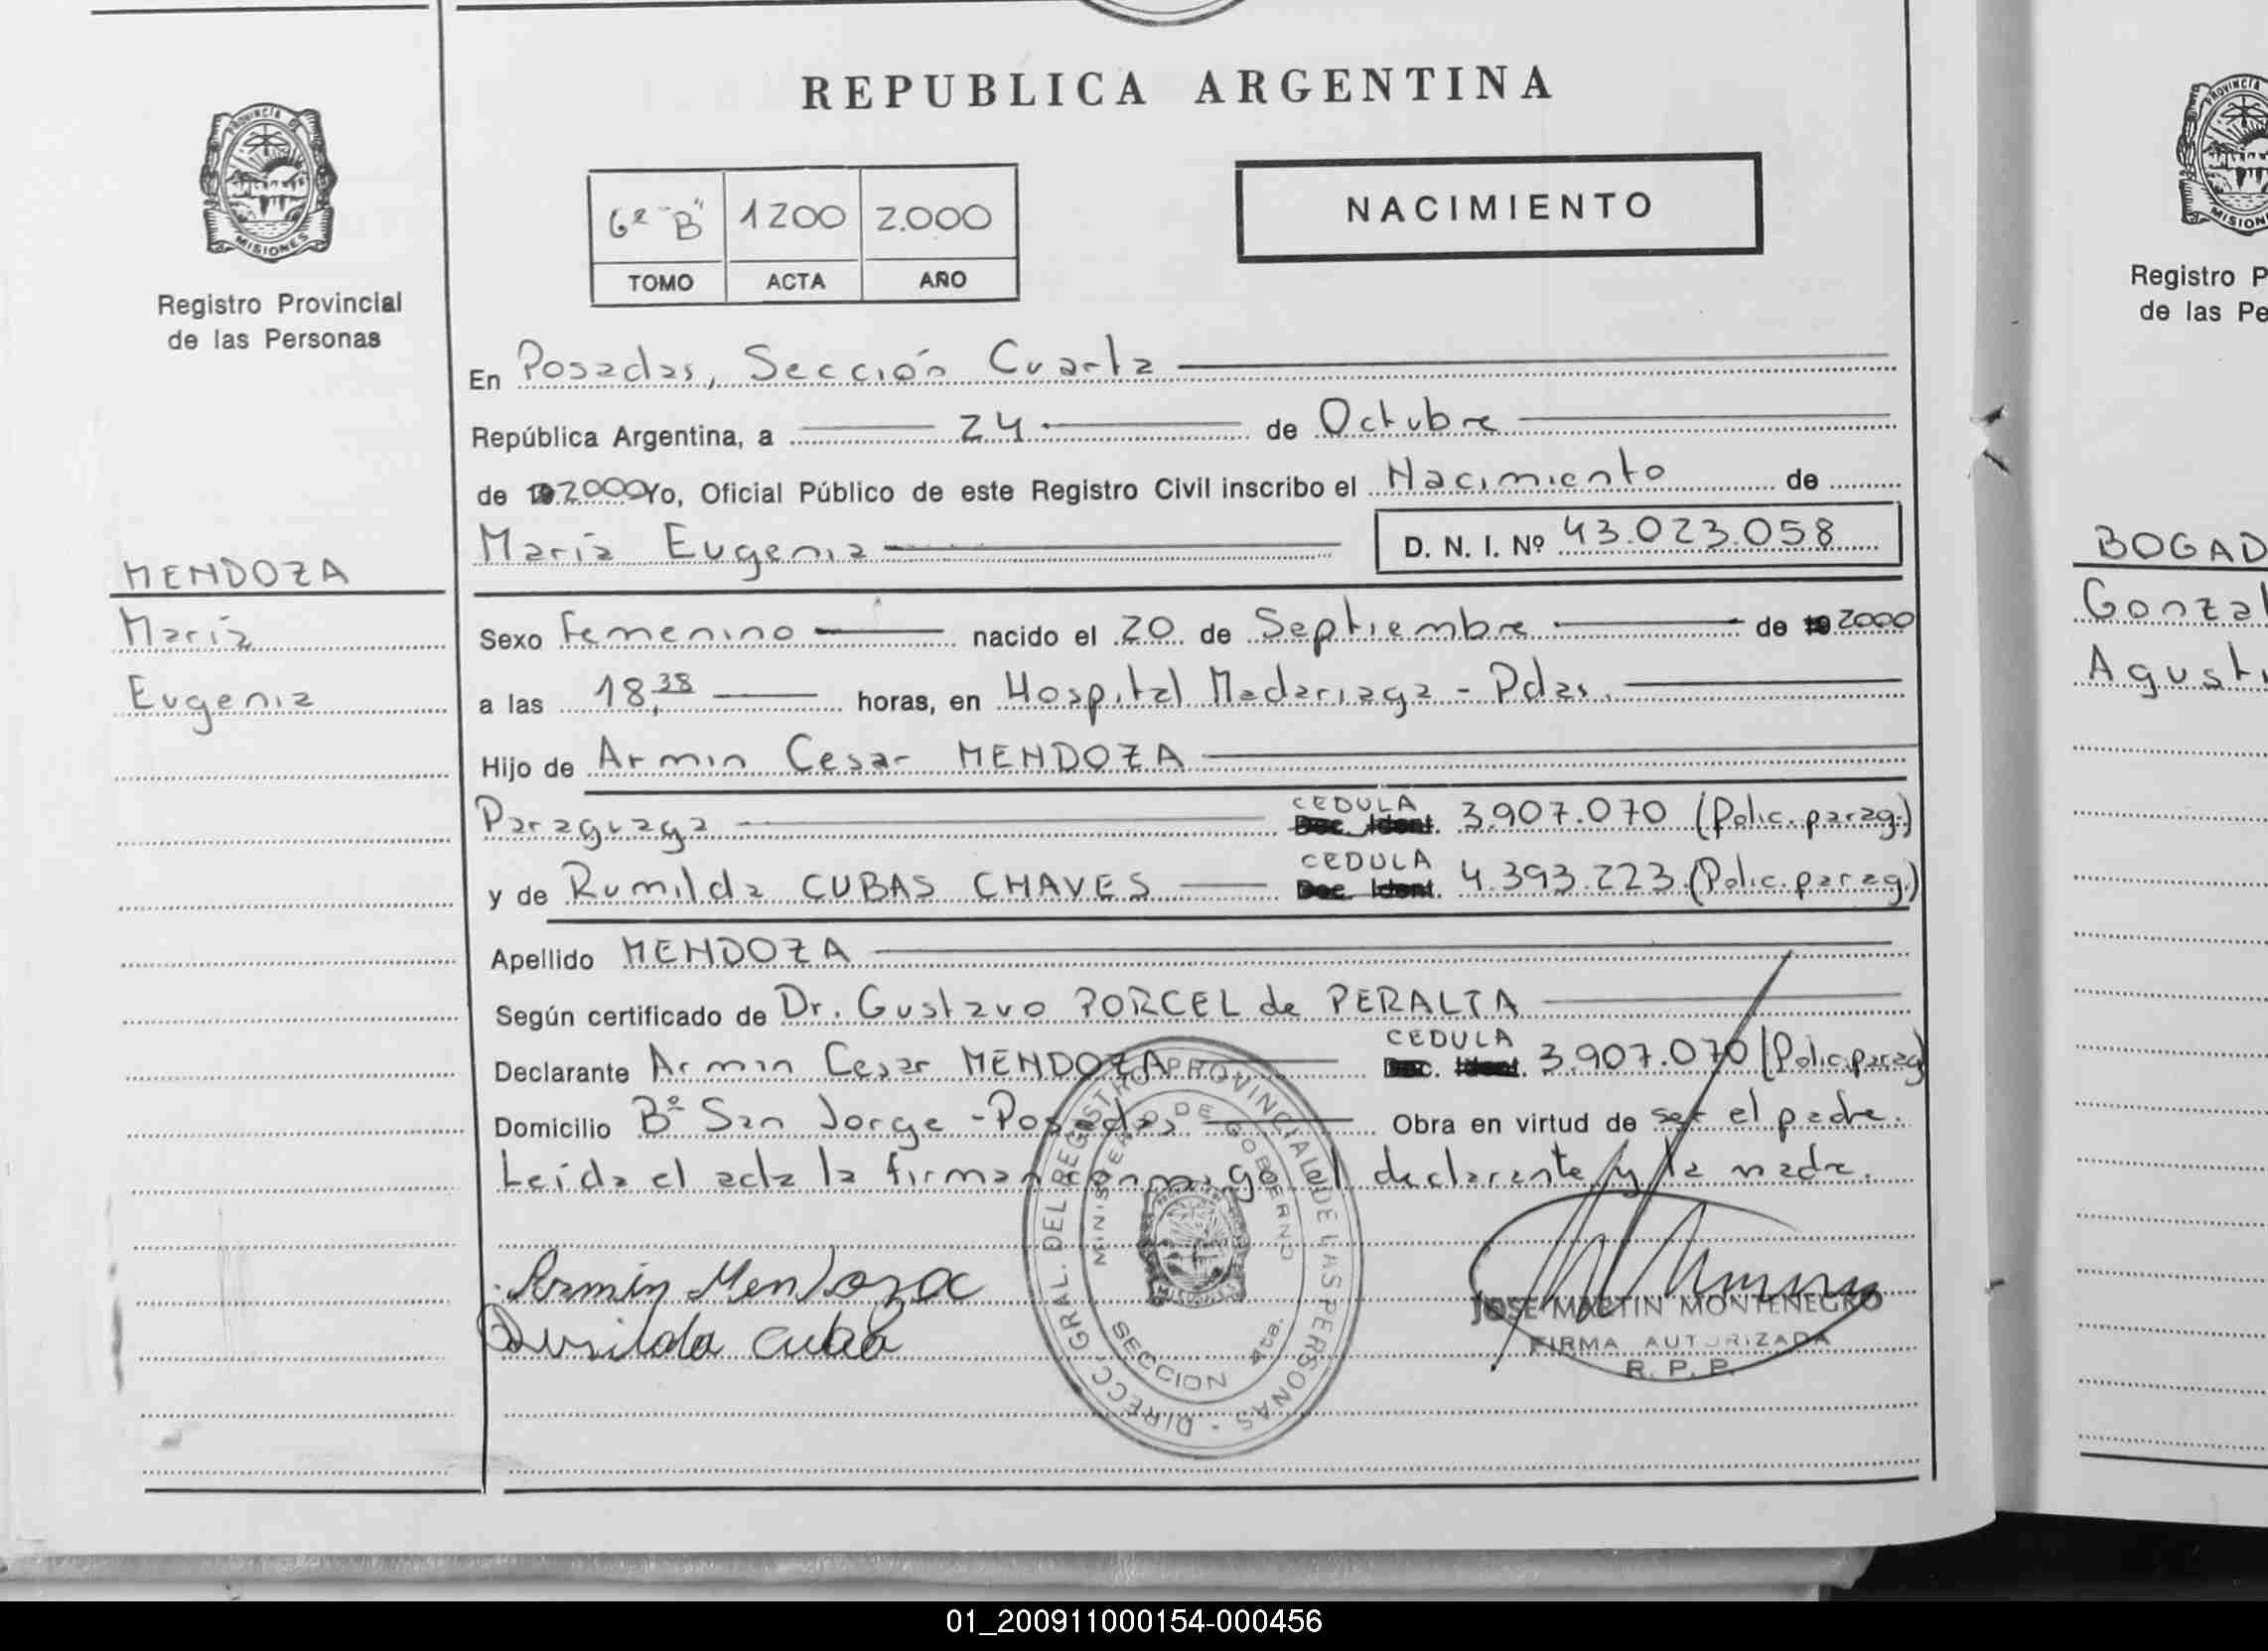 REPUBLICA ARGENTINA
PROVINCIA DE
MISIONES
Registro Provincial
de las Personas
6º "B" 1200 2.000
TOMO ACTA AÑO
NACIMIENTO
En Posadas, Sección Cuarta
República Argentina, a 24 de Octubre
de 192000 Yo, Oficial Público de este Registro Civil inscribo el Nacimiento de
María Eugenia D. N. I. Nº 43.023.058
MENDOZA
María
Eugenia
Sexo Femenino nacido el 20 de Septiembre de 19 2000
a las 18,38 horas, en Hospital Madariaga - Pdas.
Hijo de Armin Cesar MENDOZA
Paraguaya CEDULA Doc. Ident. 3.907.070 (Polic. parag.)
y de Rumilda CUBAS CHAVES CEDULA Doc. Ident. 4.393.223 (Polic. parag.)
Apellido MENDOZA
Según certificado de Dr. Gustavo PORCEL de PERALTA
Declarante Armin Cesar MENDOZA CEDULA Doc. Ident. 3.907.070 (Polic. parag)
Domicilio Bº San Jorge - Posadas Obra en virtud de ser el padre.
Leída el acta la firman conmigo el declarante y la madre.
Armin Mendoza
Rumilda Cubas
DIRECC. GRAL. DEL REGISTRO PROVINCIAL DE LAS PERSONAS -
MINISTERIO DE GOBIERNO
SECCION 4ta.
JOSE MARTIN MONTENEGRO
FIRMA AUTORIZADA
R. P. P.
PROVINCIA
MISION
Registro P
de las Pe
BOGAD
Gonzal
Agusti
01_200911000154-000456